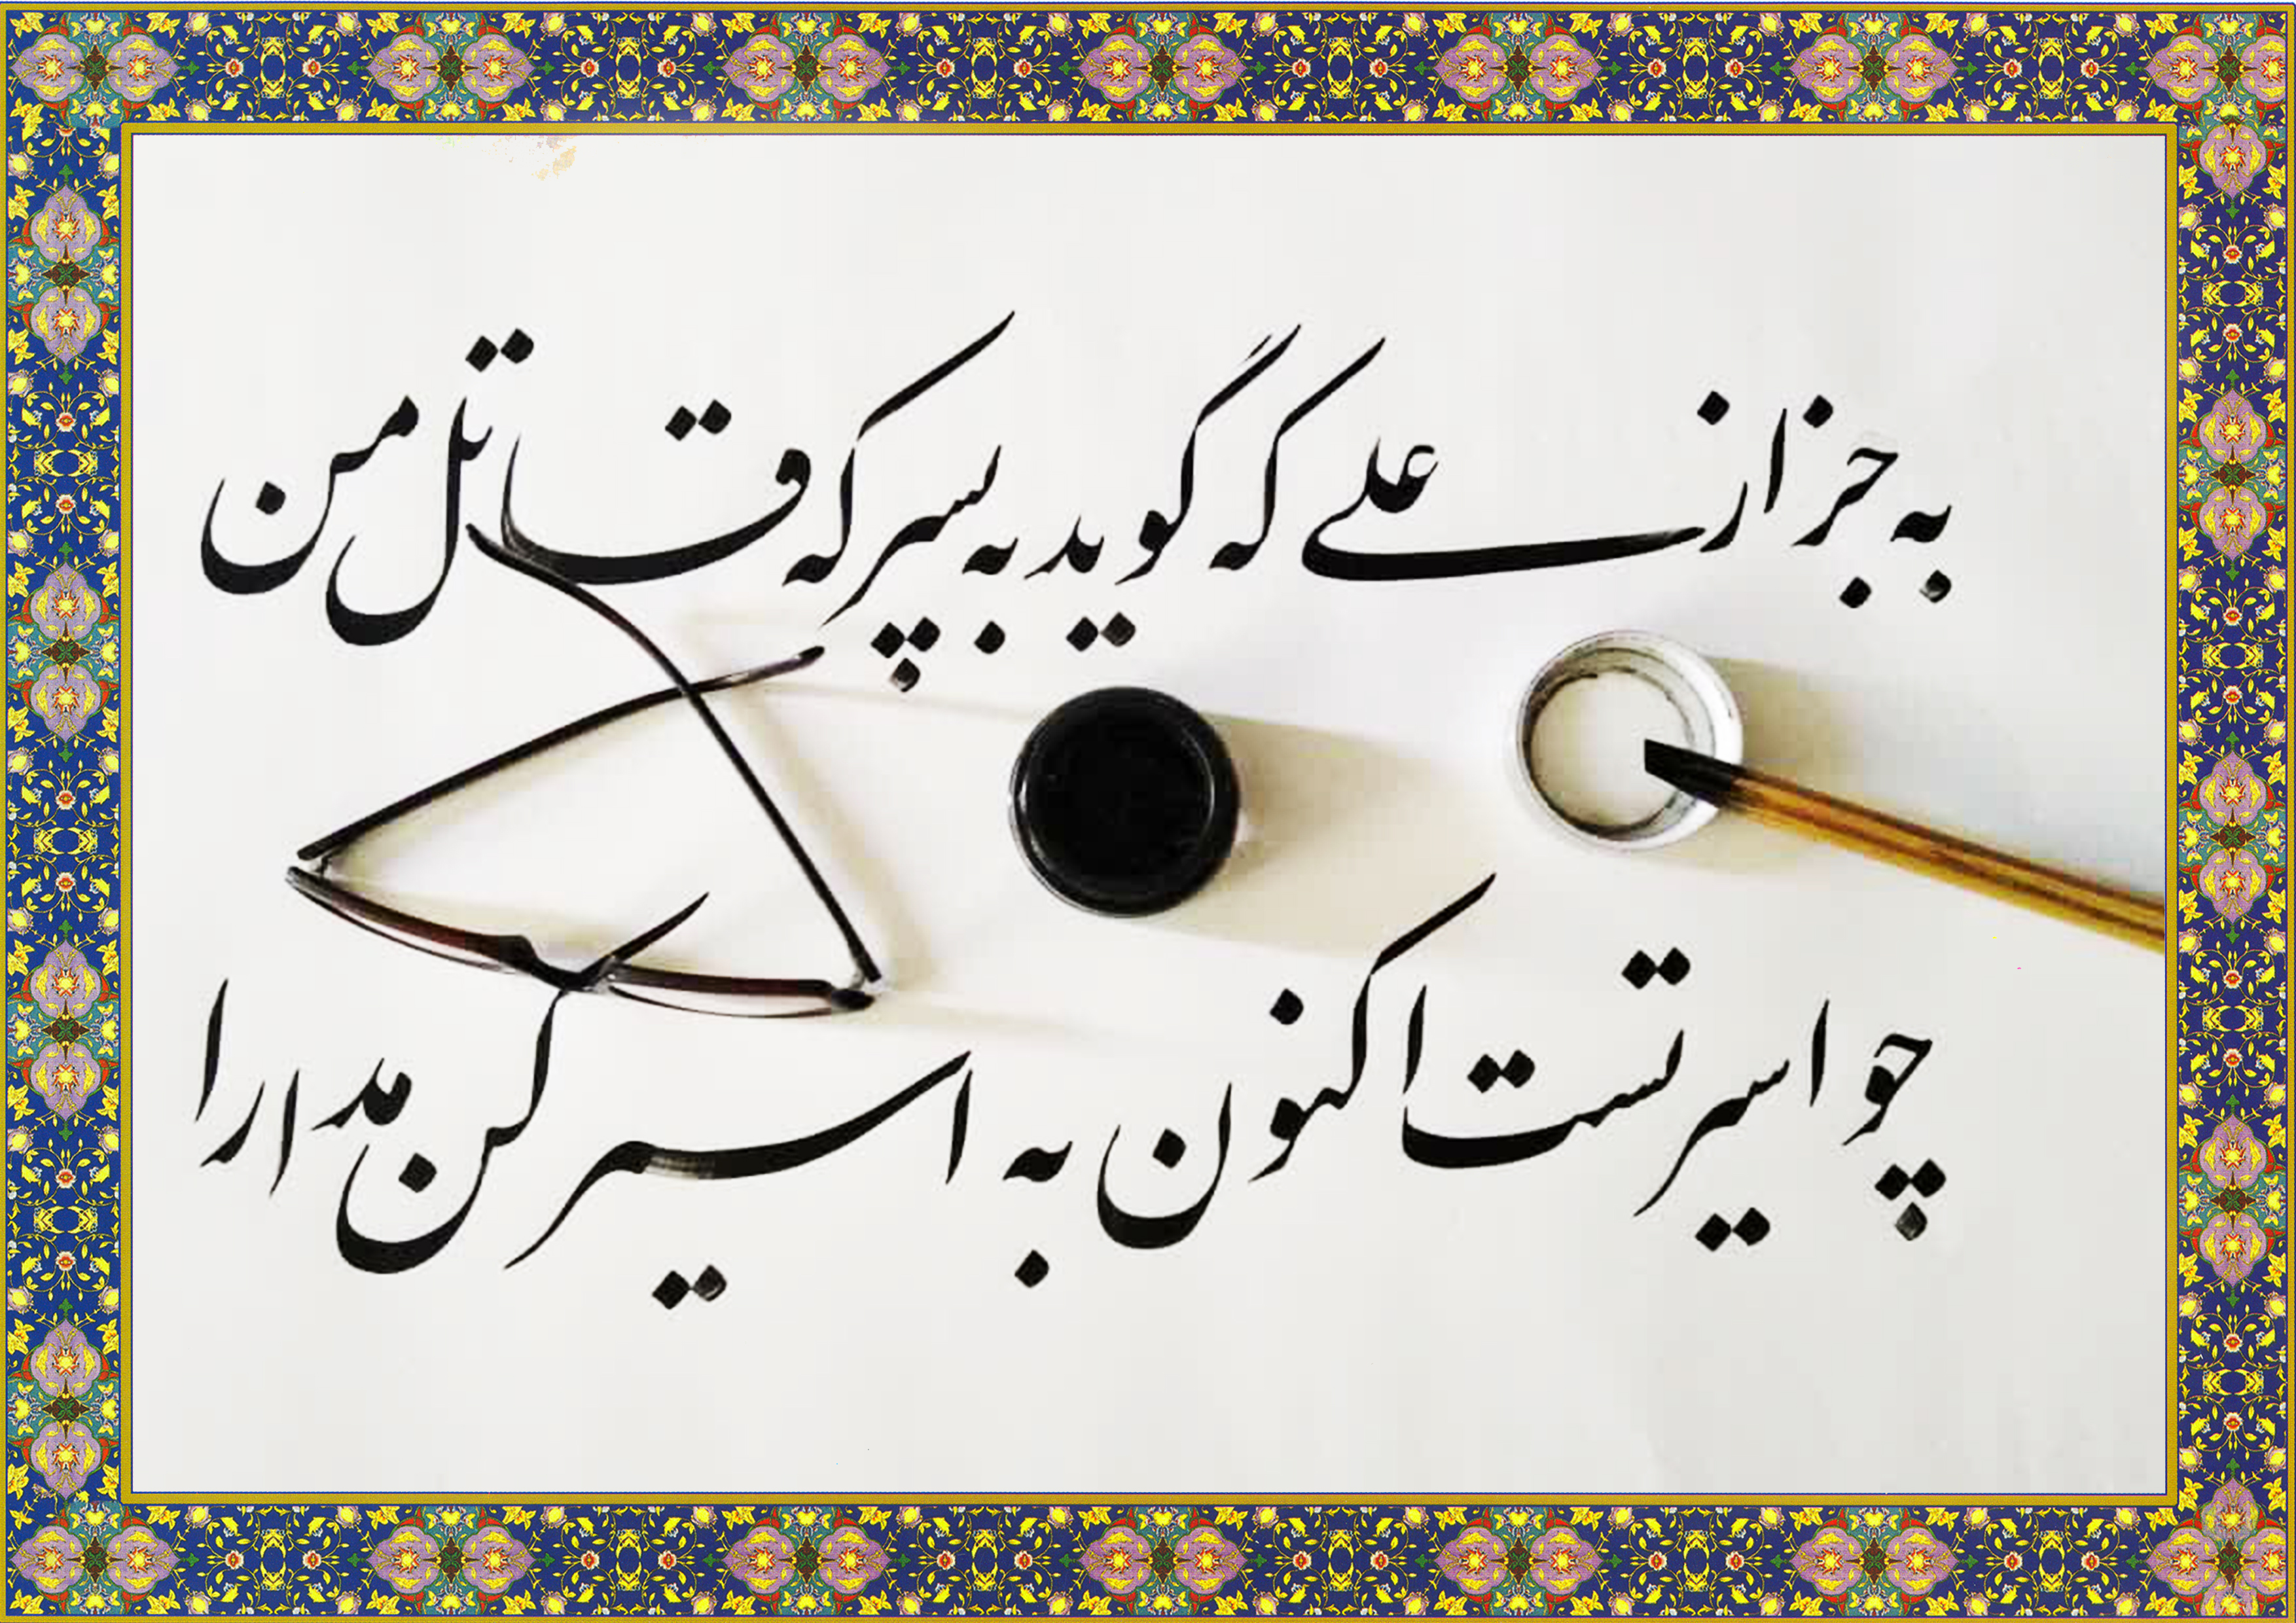 به جز از علی که گوید به پسر که قاتل من
چو اسیر تست اکنون به اسیر کن مدارا